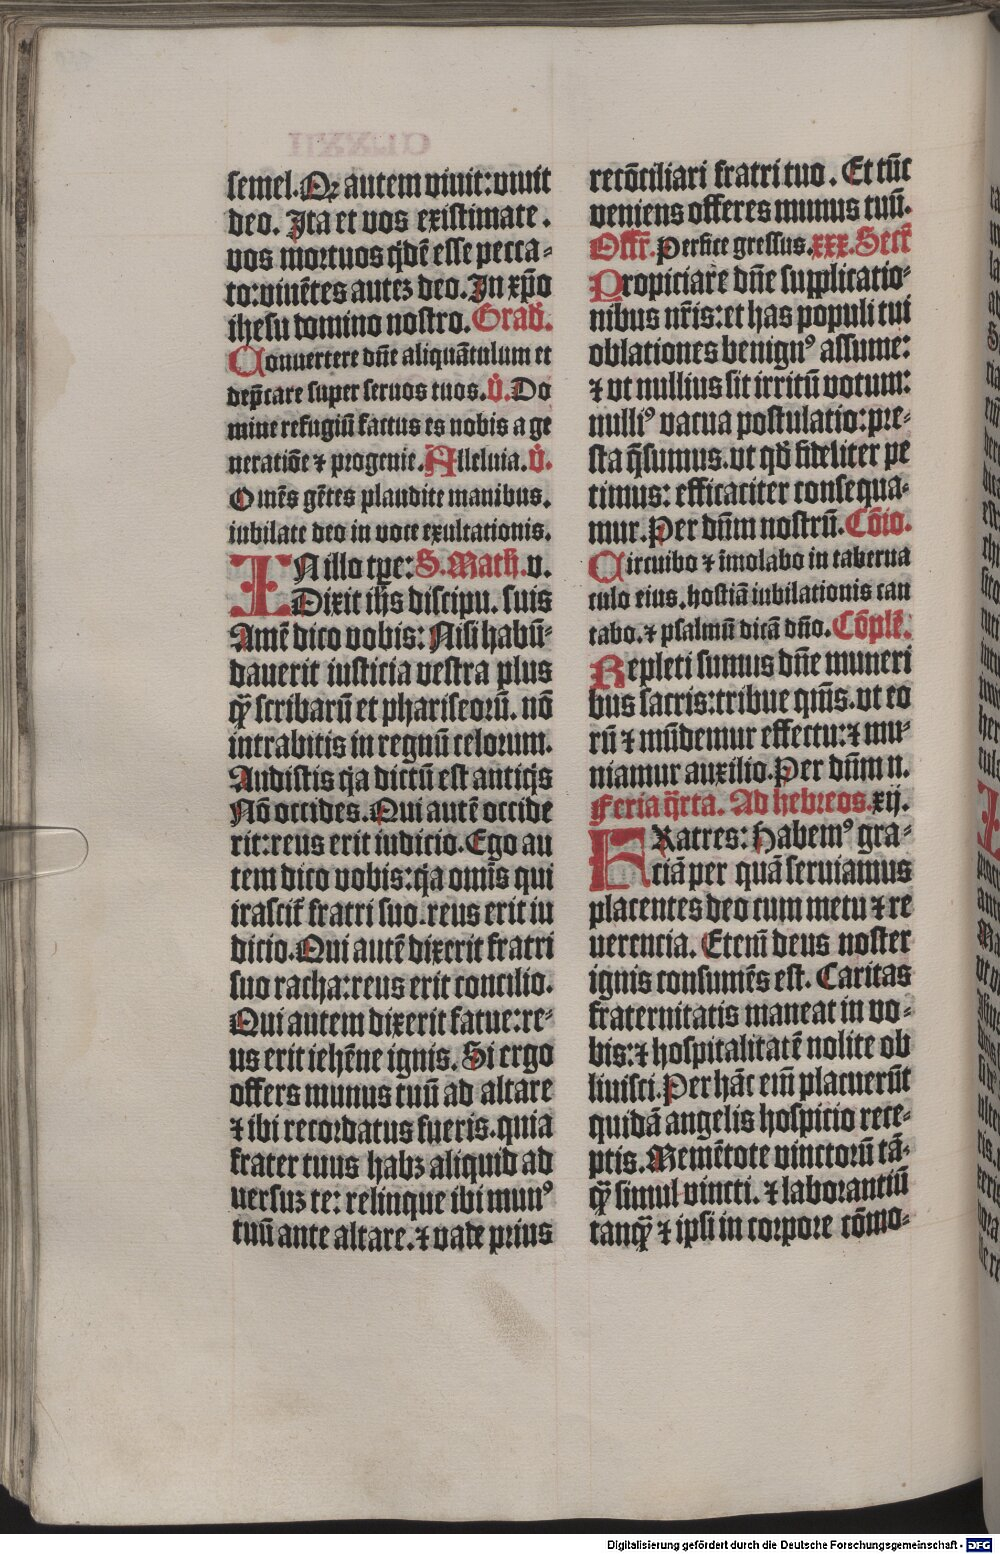 semel. Qꝫ autem viuit: viuit
deo. Ita et vos existimate.
vos mortuos qͥdē esse pecca-
to: viuētes autez deo. In xp̄o
ihesu domino nostro. Grad̄.
Conuertere dn̄e aliquātulum et
dep̄care super seruos tuos. V̇. Do
mine refugiū factus es nobis a ge
neratiōe ⁊ progenie. Alleluia. V̇.
Omēs gētes plaudite manibus.
iubilate deo in voce exultationis.
IN illo tp̄e: S. Math̄. v.
Dixit ih̄s discipu. suis
Amē dico vobis: Nisi habū-
dauerit iusticia vestra plus
qꝫ̄ scribarū et phariseorū. nō
intrabitis in regnū celorum.
Audistis qꝛa dictū est antiqͥs
Nō occides. Qui autē occide
rit: reus erit iudicio. Ego au
tem dico vobis: qꝛa omīs qui
irascit̄ fratri suo. reus erit iu
dicio. Qui autē dixerit fratri
suo racha: reus erit concilio.
Qui autem dixerit fatue: re-
us erit iehēne ignis. Si ergo
offers munus tuū ad altare
⁊ ibi recordatus fueris. quia
frater tuus habꝫ aliquid ad
uersuz te: relinque ibi munꝰ
tuū ante altare. ⁊ vade prius
recōciliari fratri tuo. Et tūc
veniens offeres munus tuū.
Offr̄. Perfice gressus. xxx. Secr̄
Propiciare dn̄e supplicatio-
nibus nr̄is: et has populi tui
oblationes benignꝰ assume:
⁊ vt nullius sit irritū votum:
nulliꝰ vacua postulatio: pre-
sta q̄sumus. vt qd̄ fideliter pe
timus: efficaciter consequa-
mur. Per dn̄m nostrū. Cōio.
Circuibo ⁊ īmolabo in taberna
culo eius. hostiā iubilationis can
tabo. ⁊ psalmū dicā dn̄o. Cōplē.
Repleti sumus dn̄e muneri
bus sacris: tribue qm̄s. vt eo
rū ⁊ mūdemur effectu: ⁊ mu-
niamur auxilio. Per dn̄m n.
Feria q̄rta. Ad hebreos. xij.
FRatres: Habemꝰ gra-
ciā per quā seruiamus
placentes deo cum metu ⁊ re
uerencia. Eteni̅ deus noster
ignis consumēs est. Caritas
fraternitatis maneat in vo-
bis: ⁊ hospitalitatē nolite ob
liuisci. Per hāc eni̅ placuerūt
quidā angelis hospicio rece-
ptis. Memētote vinctorū tā-
qꝫ̄ simul vincti. ⁊ laborantiū
tanqꝫ̄ ⁊ ipsi in corpore cōmo-
Digitalisierung gefördert durch die Deutsche Forschungsgemeinschaft - DFG